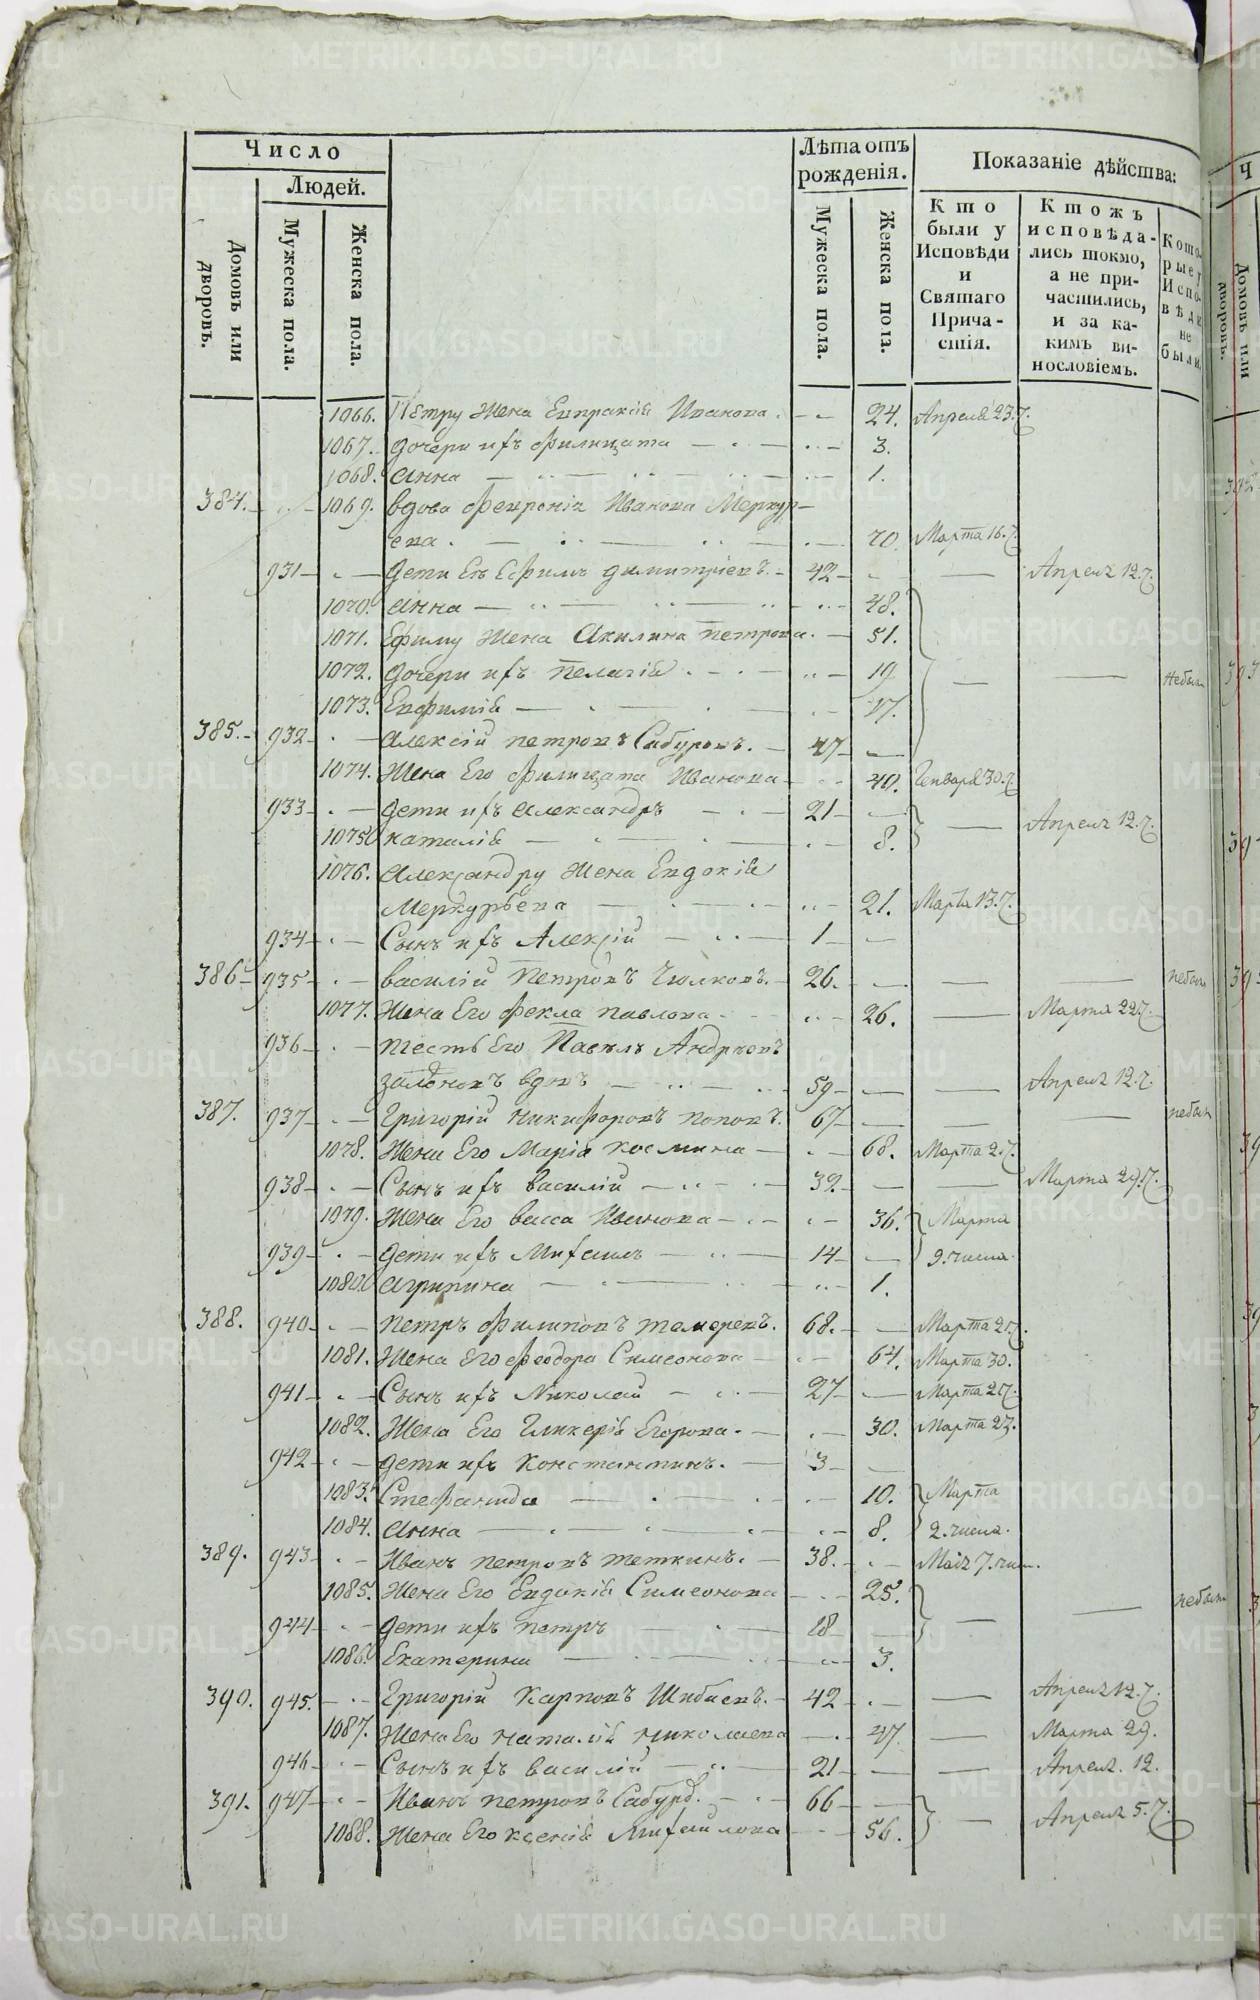 Число
Людей.
Домовъ или дворовъ.
Мужеска пола.
Женска пола.
Лѣта отъ рожденія.
Мужеска пола.
Женска пола.
Показаніе дѣйства:
Кто были у Исповѣди и Святаго Причастія.
Ктожъ исповѣдались токмо, а не причастились, и за какимъ винословіемъ.
Которые у Исповѣди не были.
1066. Петру жена Евпраксія Иванова. 24. Апреля 23.
1067. дочери ихъ Филицата 3.
1068. Анна 1.
384. 1069. вдова Феврониа Иванова Меркурьева. 70. Марта 16.
931 дети Ея Ефимъ Димитріевъ. 42 Апреля 12.
1070. Анна 48.
1071. Ефиму жена Акилина Петрова. 51.
1072. дочери ихъ Пелагія 19 небыли
1073. Евфимія 17.
385. 932 Алексій Петровъ Сабуровъ. 47
1074. Жена Его Филицата Иванова 40. Генваря 30.
933 дети ихъ Александръ 21 Апреля 12.
1075 наталія 8.
1076. Александру жена Евдокія Меркурьева 21. Марта 13.
934 Сынъ ихъ Алексій 1
386 935 василій Петровъ Чюлковъ. 26. небылъ
1077. Жена Его Фекла павлова 26. Марта 22.
936 тесть Его Павелъ Андреевъ вдовъ 59 Апреля 12.
387. 937 Григорій никифоровъ поповъ. 67 небылъ
1078. Жена Его Марія космина 68. Марта 2.
938 Сынъ ихъ василій 39. Марта 29.
1079. Жена Его васса Иванова 36. Марта
939 дети ихъ Михаилъ 14 9. числа.
1080. Агрипина 1.
388. 940 Петръ Филиповъ 68. Марта
1081. Жена Его Феодора Симеонова 64. Марта 30.
941 Сынъ ихъ Николай 27 Марта
1082. Жена Его Гликерія Егорова. 30. Марта
942 дети ихъ Константинъ. 3
1083. Стефанида 10. Марта
1084. Анна 8. 2. числа.
389. 943 Иванъ петровъ теткинъ. 38. Маіа 7. чис.
1085. Жена Его Евдокія Симеонова 25. небыли
944 дети ихъ петръ 18
1086. Екатерина 3.
390. 945. Григорій Карповъ Шибаевъ. 42 Апреля 12.
1087. Жена Его наталія николаева 47. Марта 29.
946 Сынъ ихъ василій 21 Апреля. 12.
391. 947 Иванъ петровъ Сабуро. 66 Апреля 5.
1088. Жена Его ксенія Михаилова 56.
Ч
Домовъ или дворовъ.
METRIKI.GASO-URAL.RU